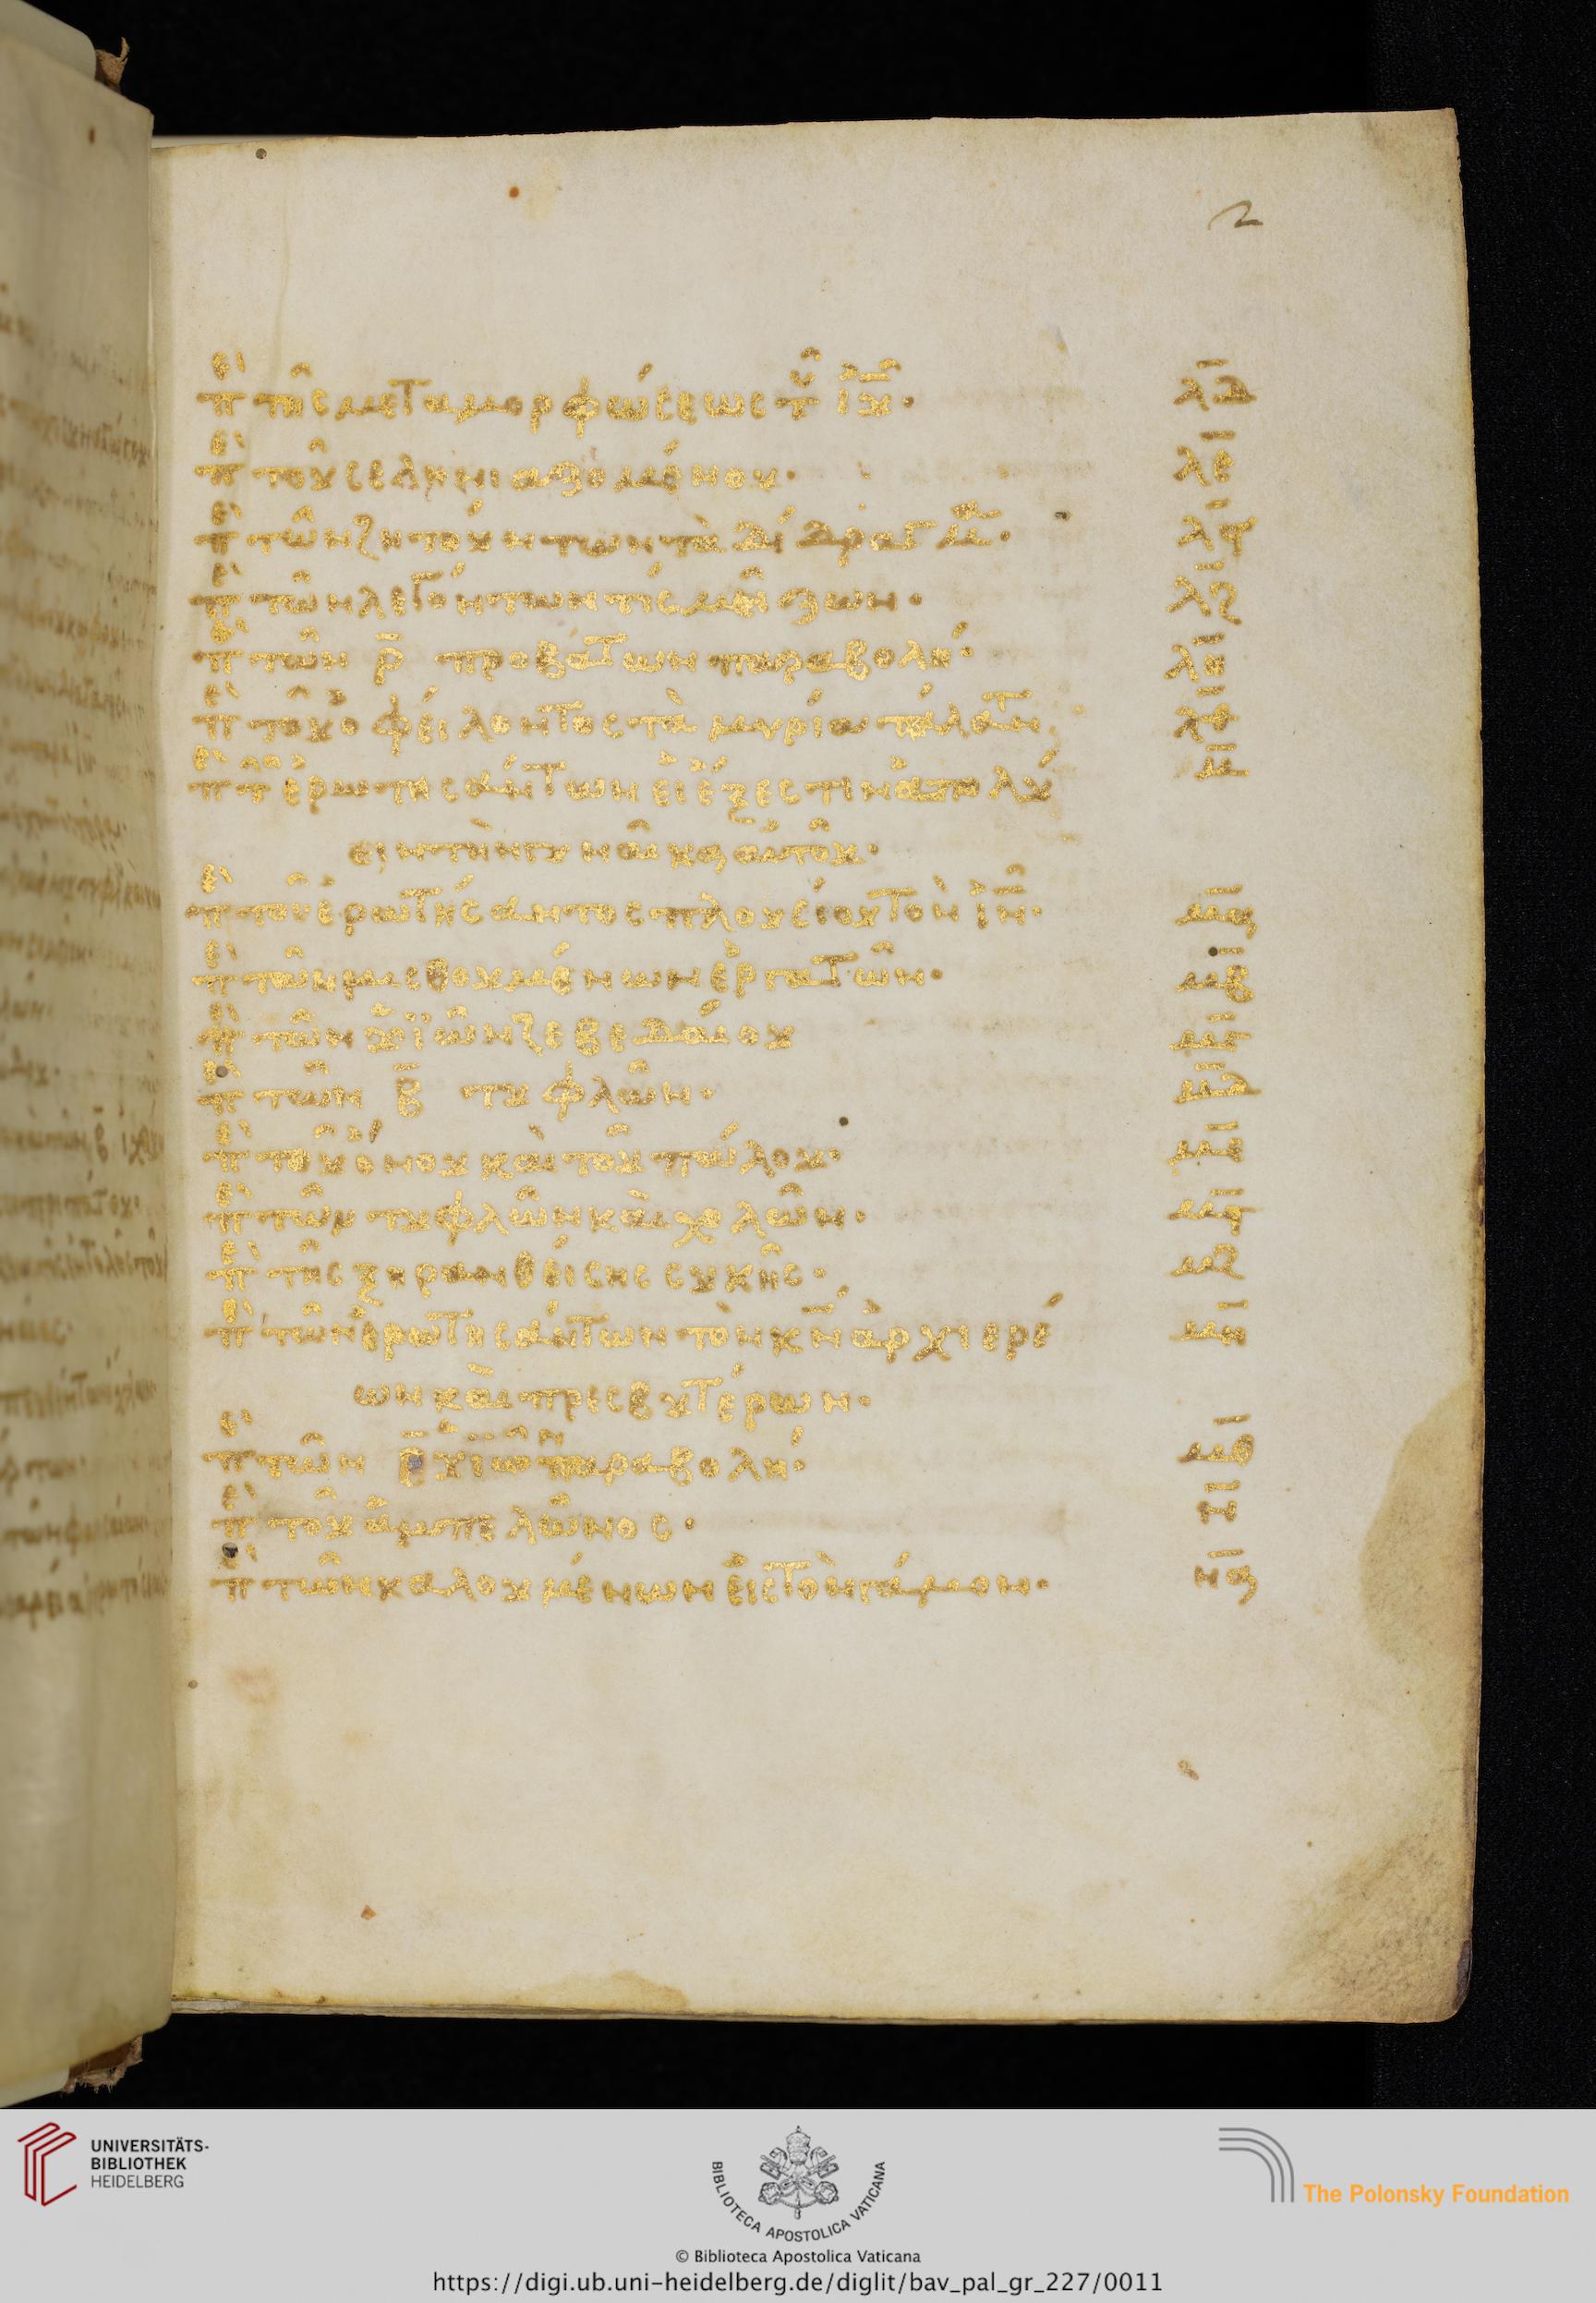 2
πε̣ρὶ τῆς μεταμορφώσεως τοῦ ἰῦ χῦ· λδ
πε̣ρὶ τοῦ σεληνιαζομένου· λε
πε̣ρὶ τῶν ζητούντων τὰ δίδραγμα· λϛ
πε̣ρὶ τῶν λεγόντων τίς μείζων· λζ
πε̣ρὶ τῶν ρ̄ προβάτων παραβολή· λη
πε̣ρὶ τοῦ ὀφείλοντος τὰ μυρία τάλαντ λθ
πε̣ρὶ τῶν ἐρωτησάντων εἰ ἔξεστιν ἀπολύ μ
ειν τὴν γυναῖκα αὐτοῦ·
πε̣ρὶ τοῦ ἐρωτήσαντος πλουσίου τὸν ἰν· μα
πε̣ρὶ τῶν μισθουμένων ἐργατῶν· μβ
πε̣ρὶ τῶν ὑϊῶν ζεβεδαίου μγ
πε̣ρὶ τῶν β̄ τυφλῶν· μδ
πε̣ρὶ τοῦ ὄνου καὶ τοῦ πώλου· με
πε̣ρὶ τῶν τυφλῶν καὶ χωλῶν· μϛ
πε̣ρὶ τῆς ξηρανθείσης συκῆς· μζ
πε̣ρὶ τῶν ἐρωτησάντων τὸν κν ἀρχιερέ μη
ων καὶ πρεσβυτέρων·
πε̣ρὶ τῶν β̄ υἱῶν παραβολή· μθ
πε̣ρὶ τοῦ ἀμπελῶνος· ν
πε̣ρὶ τῶν καλουμένων εἰς τὸν γάμον· να
UNIVERSITÄTS-
BIBLIOTHEK
HEIDELBERG
BIBLIOTECA APOSTOLICA VATICANA
The Polonsky Foundation
© Biblioteca Apostolica Vaticana
https://digi.ub.uni-heidelberg.de/diglit/bav_pal_gr_227/0011